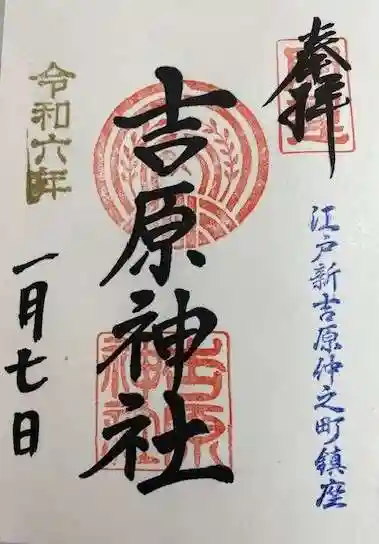 奉拝
江戸新吉原仲之町鎮座
吉原神社
吉原
神社
令和六年
一月七日